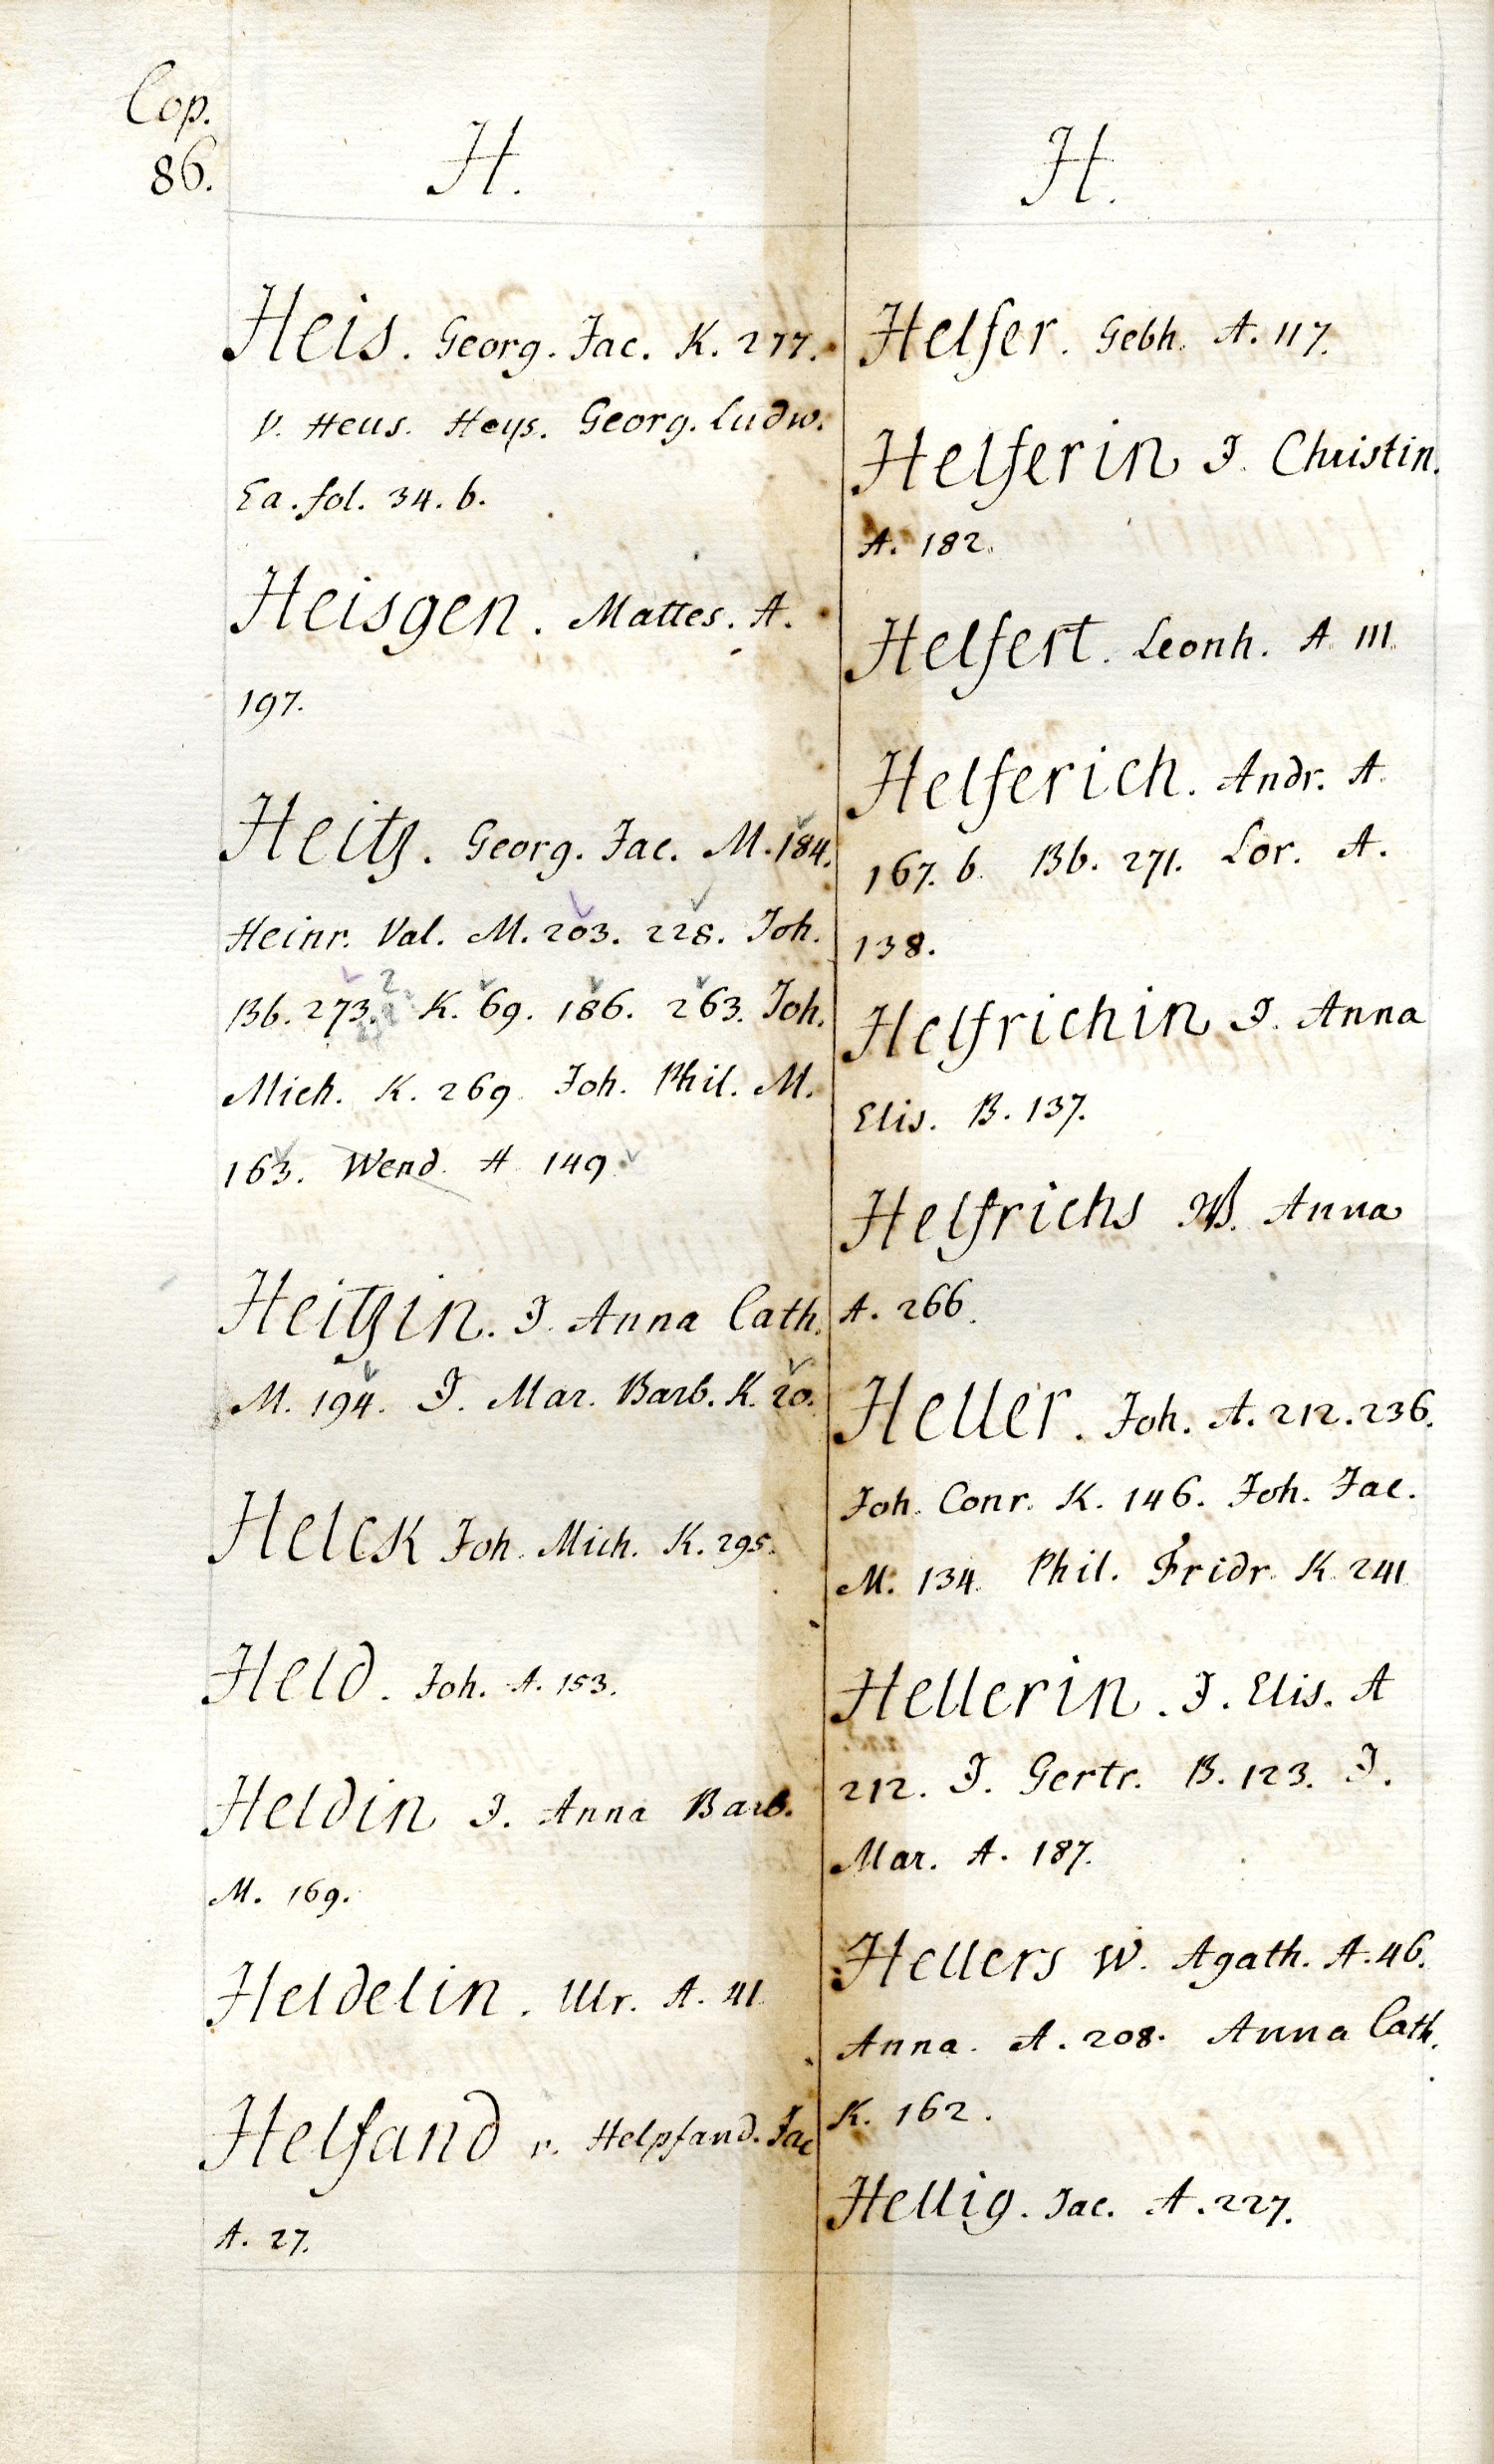 Cop.
86.
H.
Heis. Georg. Jac. K. 277.
v. Heus. Heys. Georg. Ludw.
Ea. fol. 34. b.
Heisgen. Mattes. A.
197.
Heitz. Georg. Jac. M. 184.
Heinr. Val. M. 203. 228. Joh.
Bb. 273. 2. K. 69. 186. 263. Joh.
Mich. K. 269. Joh. Phil. M.
163. Wend. A 149.
Heitzin. J. Anna Cath.
M. 194. J. Mar. Barb. K. 20.
Helck Joh. Mich. K. 295.
Held. Joh. A. 153.
Heldin J. Anna Barb.
M. 169.
Heldelin. Ulr. A. 41.
Helfand v. Helpfand. Jac
A. 27.
H.
Helfer. Gebh. A. 117.
Helferin J. Christin.
A. 182.
Helfert. Leonh. A. 111.
Helferich. Andr. A.
167. b. Bb. 271. Lor. A.
138.
Helfrichin J. Anna
Elis. B. 137.
Helfrichs W. Anna
A. 266.
Heller. Joh. A. 212. 236.
Joh. Conr. K. 146. Joh. Jac.
M. 134. Phil. Fridr. K. 241
Hellerin. J. Elis. A
212. J. Gertr. B. 123. J.
Mar. A. 187.
Hellers W. Agath. A. 46.
Anna. A. 208. Anna Cath.
K. 162.
Hellig. Jac. A. 227.